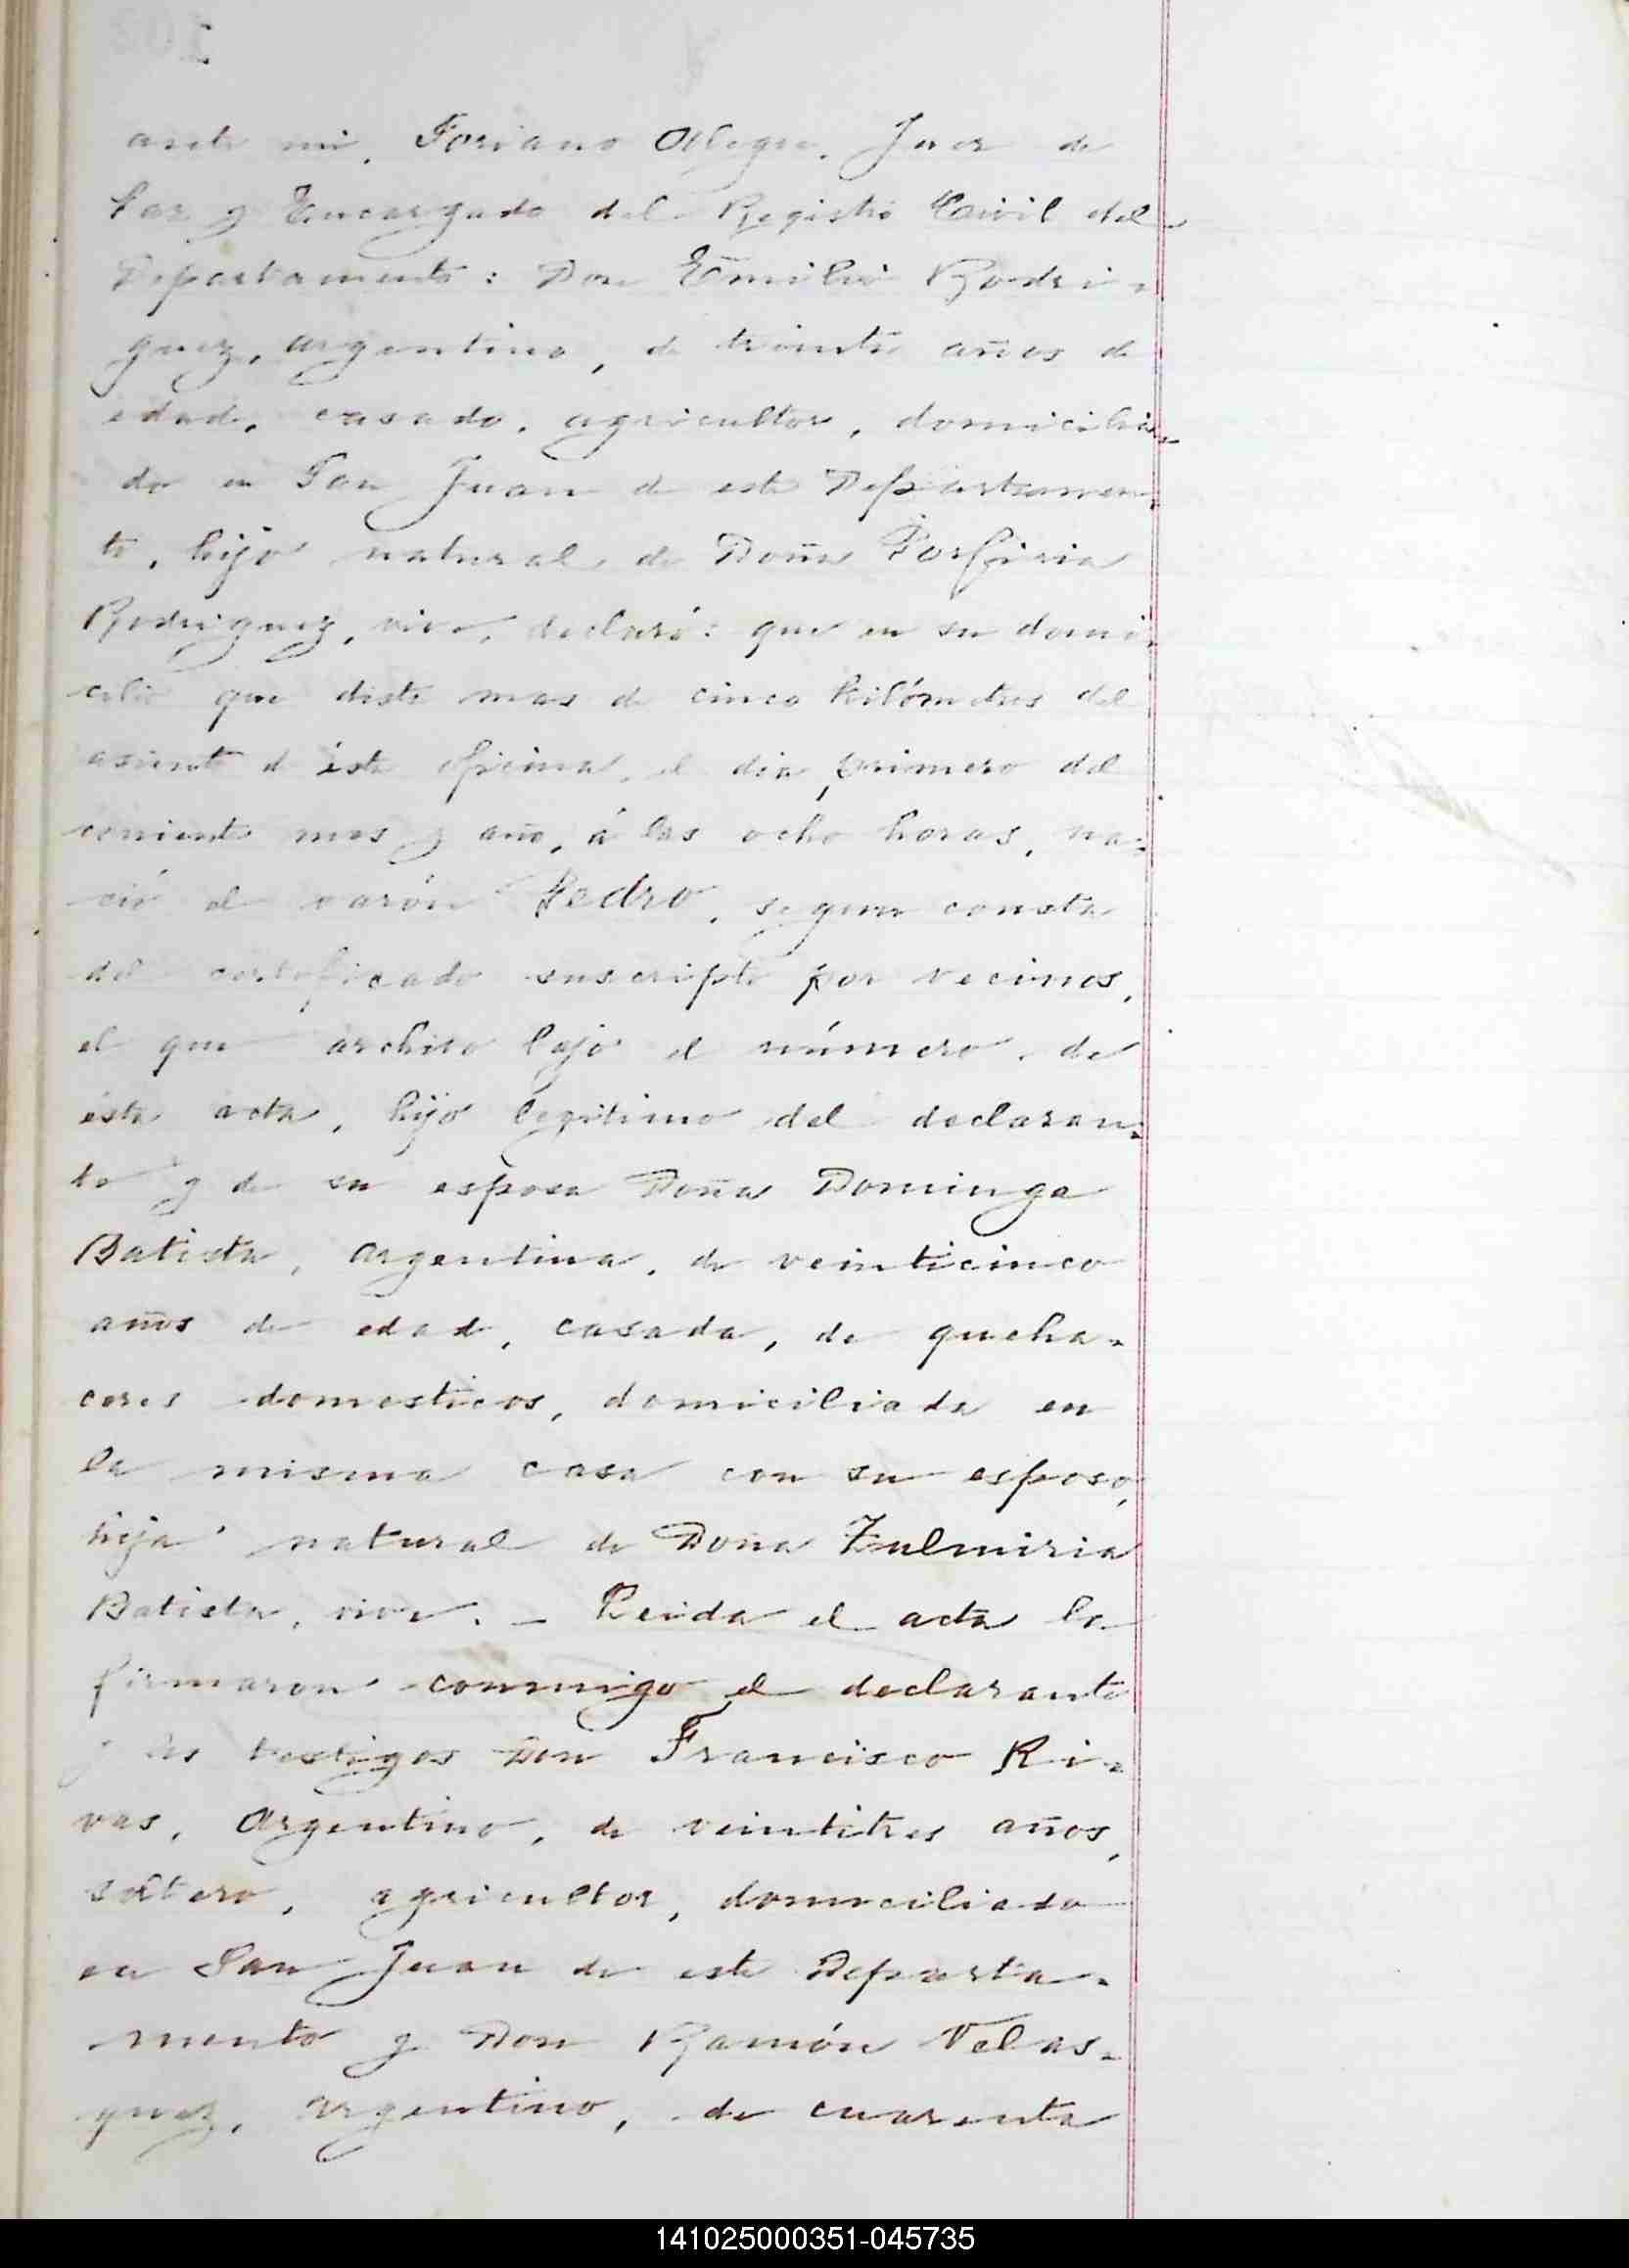 ante mi, Foriano Alegre, Juez de
Paz y Encargado del Registro Civil del
Departamento: Don Emilio Rodri-
guez, argentino, de treinta años de
edad, casado, agricultor, domicilia-
do en San Juan de este Departamen-
to, hijo natural de Doña Porfiria
Rodriguez, viva, declaró: que en su domi-
cilio que dista mas de cinco kilómetros del
asiento de ésta oficina, el dia primero del
corriente mes y año, á las ocho horas, na-
ció el varón Pedro, segun consta
del certificado suscripto por vecinos,
el que archivo bajo el número de
ésta acta, hijo legitimo del declaran-
te y de su esposa Doña Dominga
Batista, argentina, de veinticinco
años de edad, casada, de queha-
ceres domesticos, domiciliada en
la misma casa con su esposo,
hija natural de Doña Zulmiria
Batista, viva. – Leida el acta la
firmaron conmigo el declarante
y los testigos Don Francisco Ri-
vas, Argentino, de veintitres años,
soltero, agricultor, domiciliado
en San Juan de este Departa-
mento y Don Ramón Velas-
quez, argentino, de cuarenta
141025000351-045735